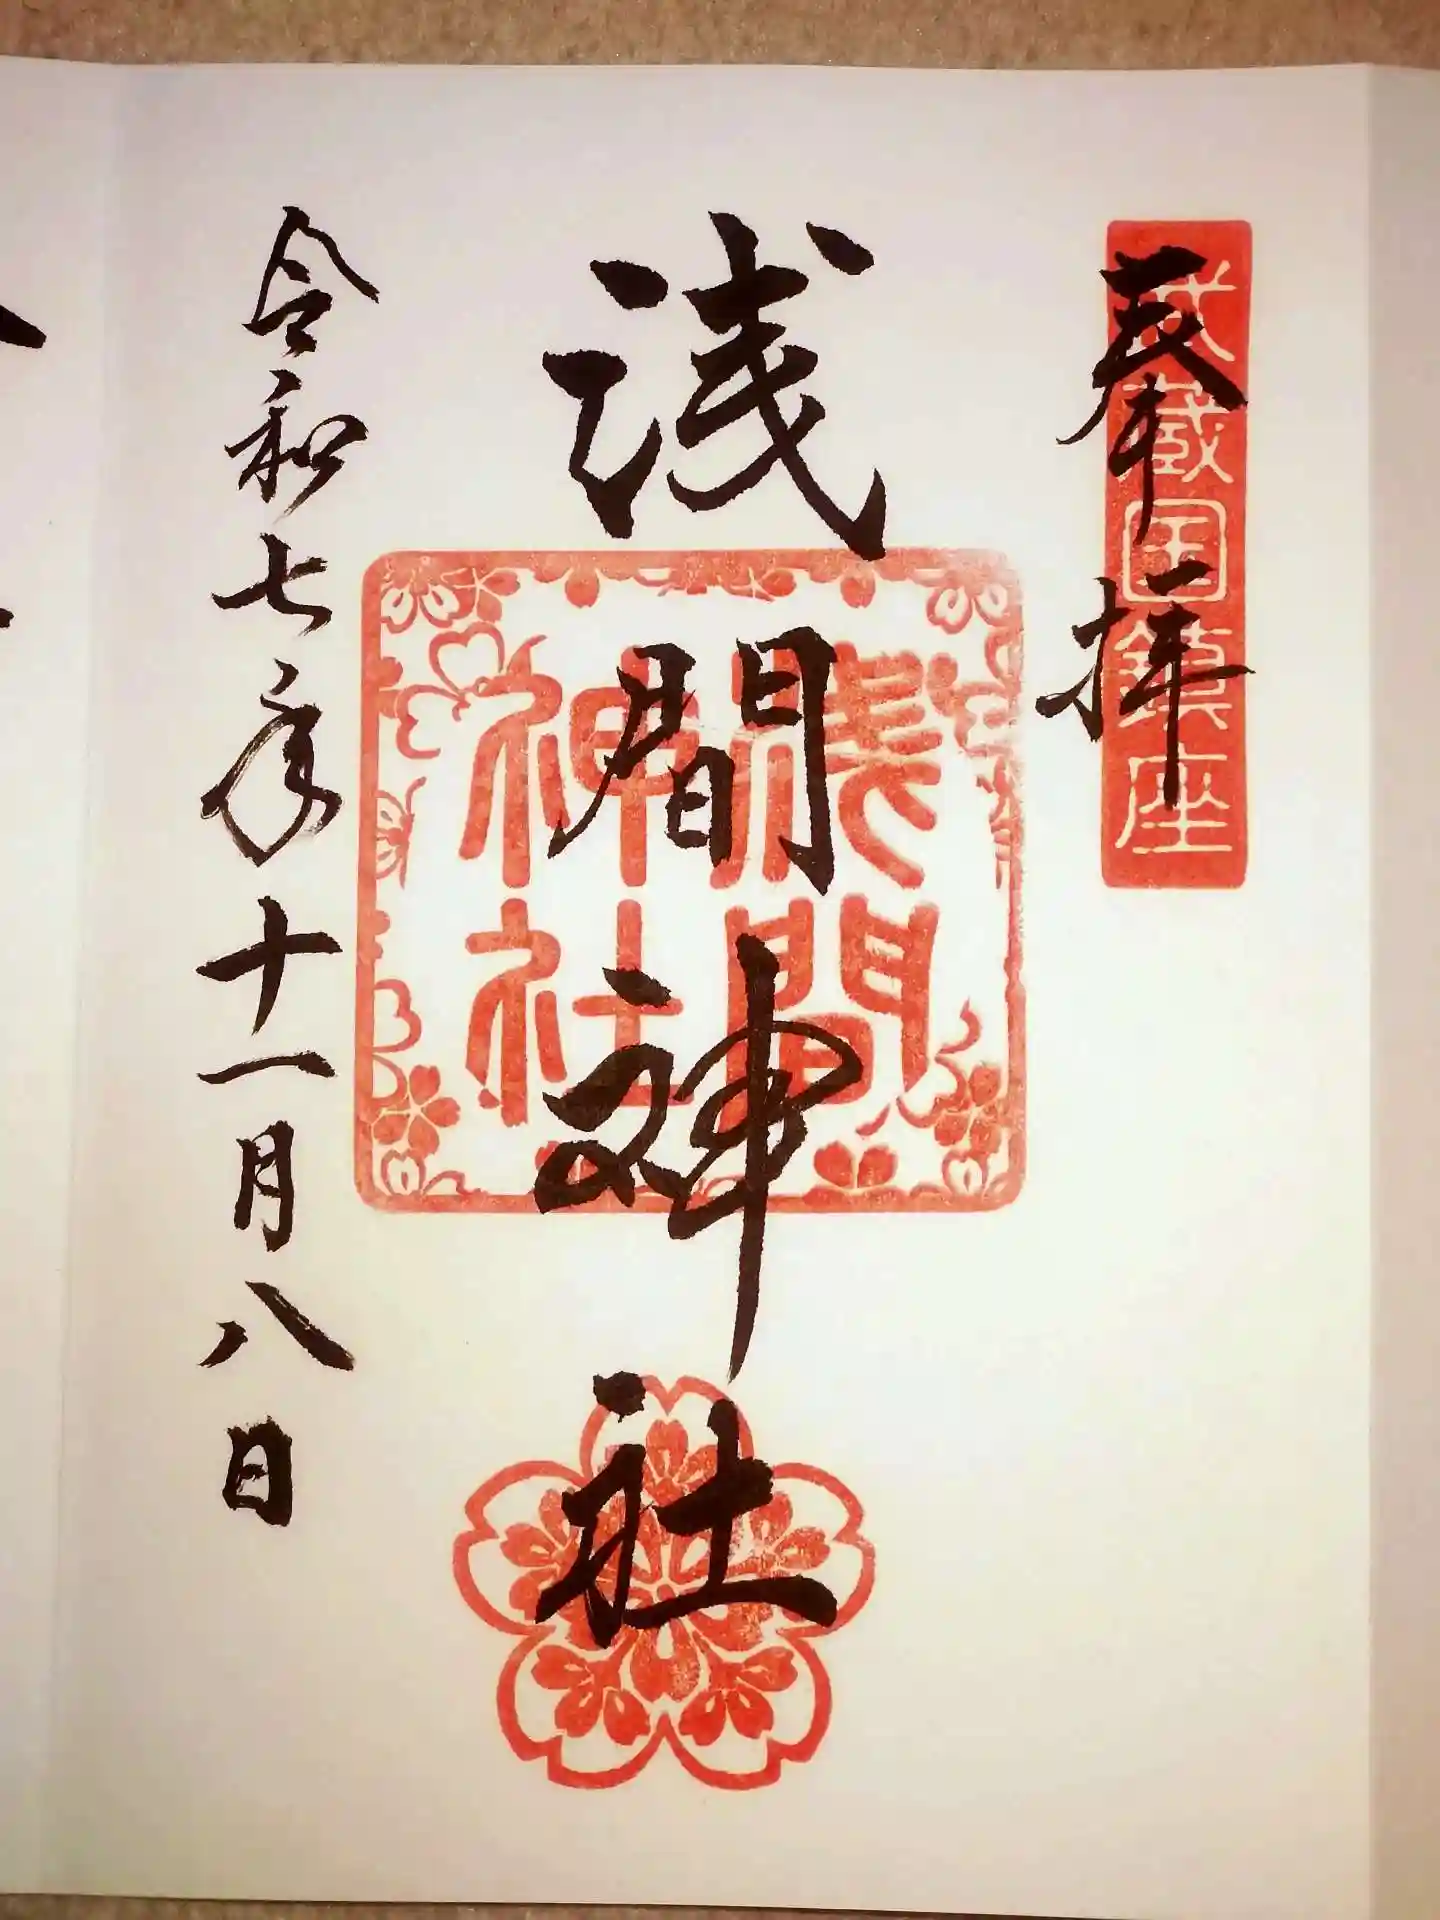 奉拝
武蔵国鎮座
浅間神社
浅間
神社
令和七年十一月八日